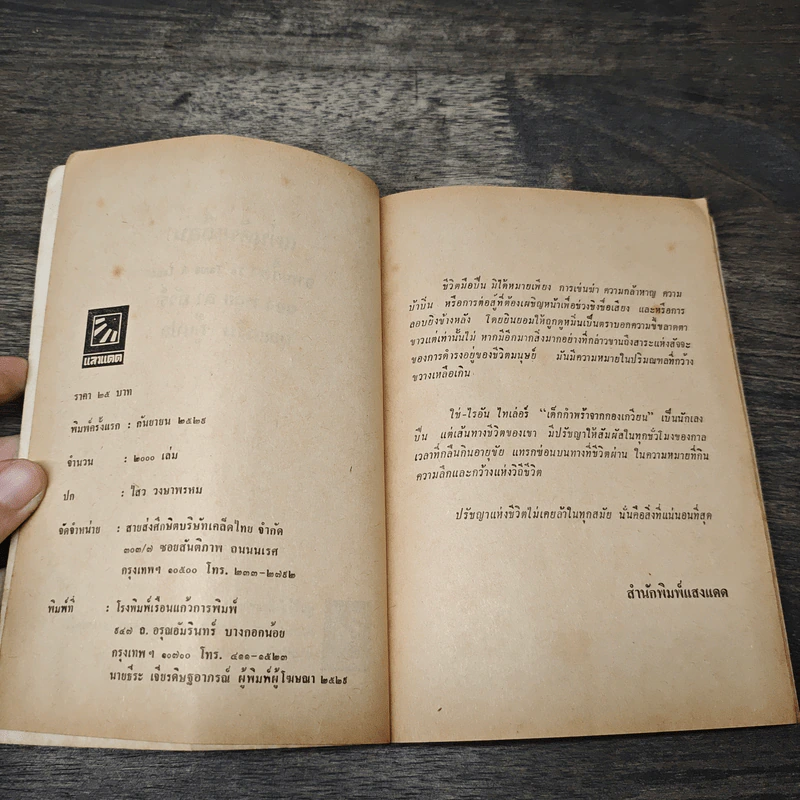 แสงแดด
ราคา ๒๕ บาท
พิมพ์ครั้งแรก : กันยายน ๒๕๒๙
จำนวน : ๒๐๐๐ เล่ม
ปก : ไสว วงษาพรหม
จัดจำหน่าย : สายส่งศึกษิตบริษัทเคล็ดไทย จำกัด
๓๐๓/๗ ซอยสันติภาพ ถนนนเรศ
กรุงเทพฯ ๑๐๕๐๐ โทร. ๒๓๓-๒๗๙๒
พิมพ์ที่ : โรงพิมพ์เรือนแก้วการพิมพ์
๙๔๗ ถ.อรุณอัมรินทร์ บางกอกน้อย
กรุงเทพฯ ๑๐๗๐๐ โทร. ๔๑๑-๑๕๒๓
นายธีระ เจียรดิษฐอาภรณ์ ผู้พิมพ์ผู้โฆษณา ๒๕๒๙
ชีวิตมือปืน มิได้หมายเพียง การเข่นฆ่า ความกล้าหาญ ความ
บ้าบิ่น หรือการต่อสู้ที่ต้องเผชิญหน้าเพื่อช่วงชิงชื่อเสียง และหรือการ
ลอบยิงข้างหลัง โดยยินยอมให้ถูกดูหมิ่นเป็นตราบอกความขี้ขลาดตา
ขาวแต่เท่านั้นไม่ หากมีอีกมากสิ่งมากอย่างที่กล่าวขานถึงสาระแห่งสัจจะ
ของการดำรงอยู่ของชีวิตมนุษย์ มันมีความหมายในปริมณฑลที่กว้าง
ขวางเหลือเกิน
ใช่-ไรอัน ไทเล่อร์ “เด็กกำพร้าจากกองเกวียน” เป็นนักเลง
ปืน แต่เส้นทางชีวิตของเขา มีปรัชญาให้สัมผัสในทุกชั่วโมงของกาล
เวลาที่กลืนกินอายุขัย แทรกซ่อนบนทางที่ชีวิตผ่าน ในความหมายที่กิน
ความลึกและกว้างแห่งวิถีชีวิต
ปรัชญาแห่งชีวิตไม่เคยล้าในทุกสมัย นั่นคือสิ่งที่แน่นอนที่สุด
สำนักพิมพ์แสงแดด